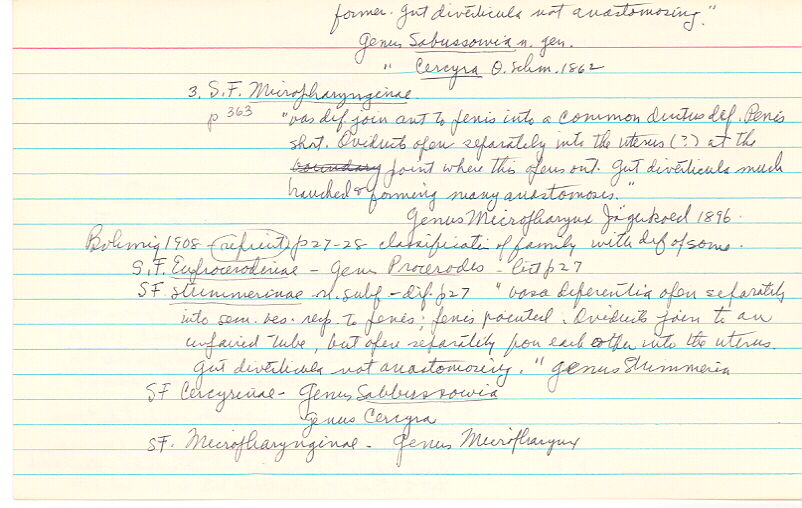 former. Gut diverticula not anastomosing."
Genus Sabussowia n. gen.
" Cercyra O. Schm. 1862
3. S.F. Micropharynginae
p 363 "vas def. join ant to penis into a common ductus def. Penis
short. Oviducts open separately into the uterus (?) at the
boundary point where this opens out. Gut diverticula much
branched & forming many anastomosis."
Genus Micropharynx Jägerskoed 1896.
Bohmig 1908 - (reprint) p27-28 classification of family with def of some.
S.F. Euprocerodinae - Genus Procerodes - list p27
SF. Stummerinae n. subf - dif. p27 "vasa deferentia open separately
into sem. ves. resp. to penis; penis pointed. Oviducts join to an
unpaired tube, but open separately from each other into the uterus.
Gut diverticula not anastomosing." genus Stummeria
SF Cercyrinae - Genus Sabbussowia
Genus Cercyra
SF. Micropharynginae - Genus Micropharynx